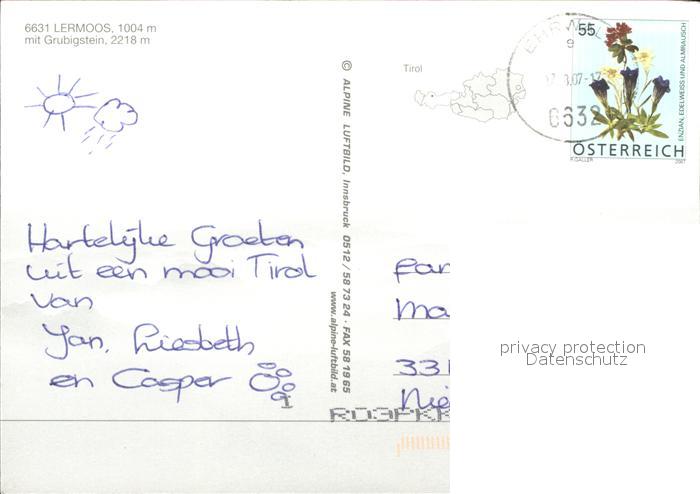 6631 LERMOOS, 1004 m
mit Grubigstein, 2218 m
Tirol
55
ENZIAN, EDELWEISS UND ALMRAUSCH
ÖSTERREICH
P. GALLER 2007
EHRWALD
9
.07-17
6632
© ALPINE LUFTBILD, Innsbruck 0512 / 58 73 24 · FAX 58 19 65
www.alpine-luftbild.at
Hartelijke Groeten
uit een mooi Tirol
van
Jan, Liesbeth
en Casper
Fam
Ma
33
Nie
privacy protection
Datenschutz